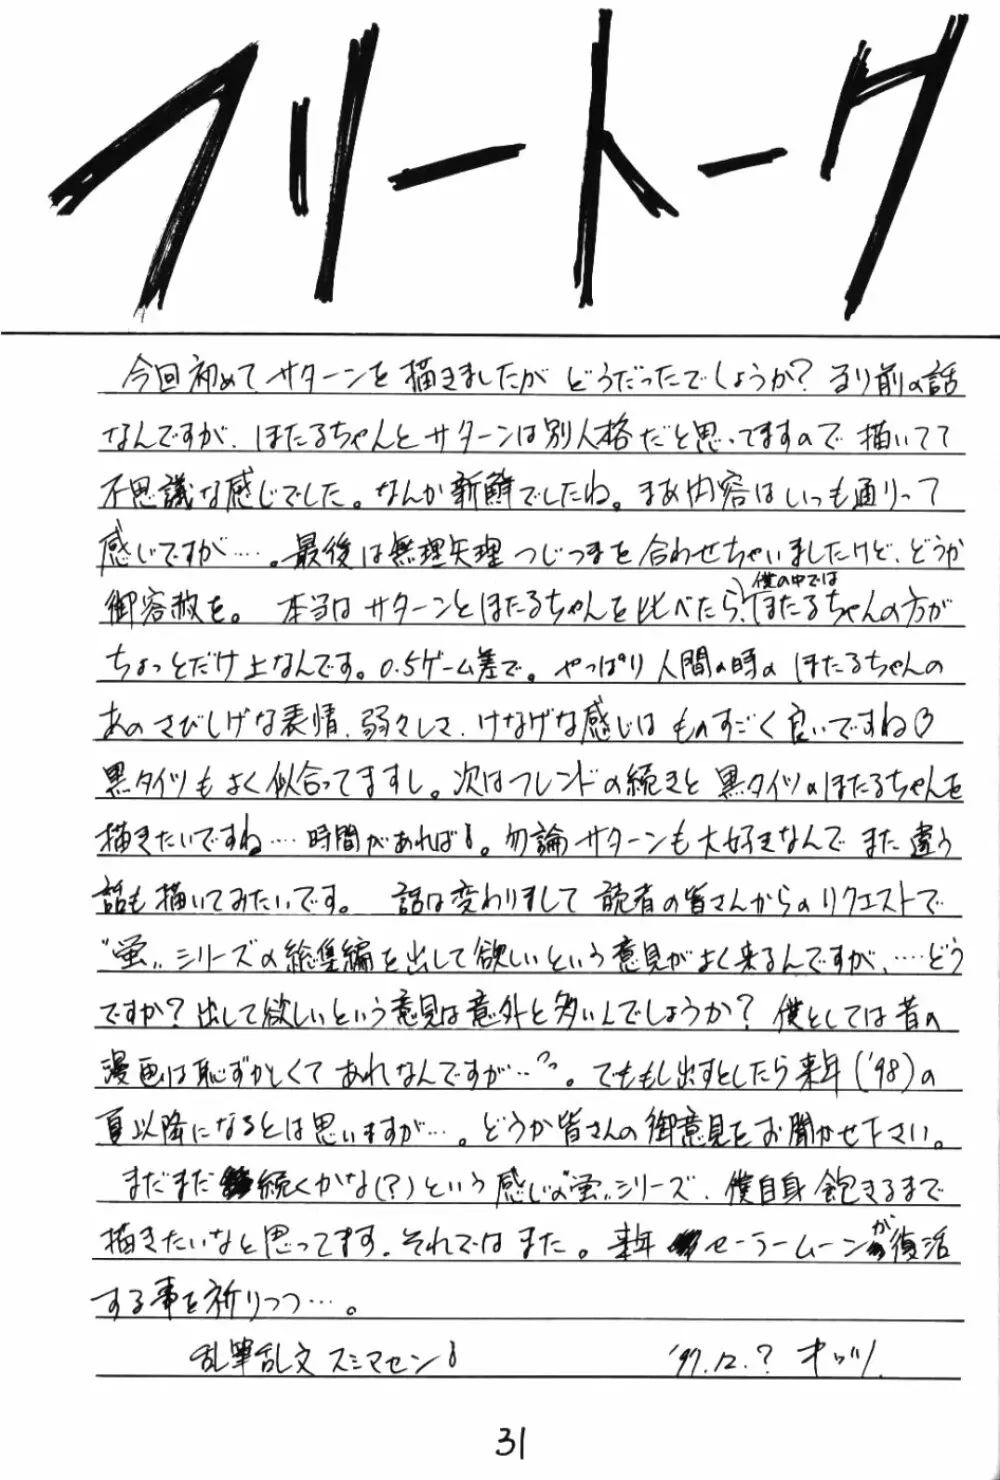 フリートーク
今回初めてサターンを描きましたがどうだったでしょうか？ 守り前の話
なんですが、ほたるちゃんとサターンは別人格だと思ってますので描いてて
不思議な感じでした。なんか新鮮でしたね。まあ内容はいつも通りって
感じですが…。最後は無理矢理つじつまを合わせちゃいましたけど、どうか
御容赦を。 本当はサターンとほたるちゃんを比べたら、僕の中ではほたるちゃんの方が
ちょっとだけ上なんです。0.5ゲーム差で。やっぱり人間の時のほたるちゃんの
あのさびしげな表情、弱々しさ、けなげな感じはものすごく良いですね♡
黒タイツもよく似合ってますし。次はフレンドの続きと黒タイツのほたるちゃんを
描きたいですね…時間があれば!。勿論サターンも大好きなんでまた違う
話も描いてみたいです。 話は変わりまして読者の皆さんからのリクエストで
〝蛍〟シリーズの総集編を出して欲しいという意見がよく来るんですが、……どう
ですか？出して欲しいという意見は意外と多いんでしょうか？ 僕としては昔の
漫画は恥ずかしくてあれなんですが…。でももし出すとしたら来年('98)の
夏以降になるとは思いますが…。どうか皆さんの御意見をお聞かせ下さい。
まだまだ続くかな(？)という感じの〝蛍〟シリーズ、僕自身飽きるまで
描きたいなと思ってます。それではまた。来年セーラームーンが復活
する事を祈りつつ…。
乱筆乱文スミマセン! '97.12.？
31